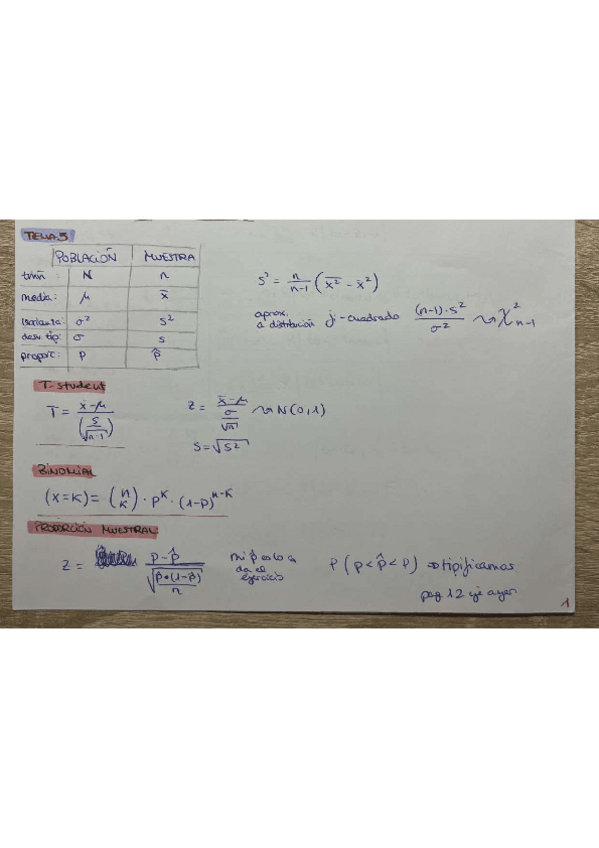 TEMA 5
POBLACIÓN MUESTRA
tamñ : N n
media: μ x̄
varianza: σ² s²
desv. tip: σ s
proporc: P p̂
s² = n/(n-1) (x̄² - x̄²)
aprox. a distribución ji-cuadrado (n-1)·s²/σ² ↝ χ²ₙ₋₁
T-student
T = (x̄-μ)/(s/√n-1)
z = (x̄-μ)/(σ/√n) ↝ N(0,1)
s = √s²
BINOMIAL
(x=k) = (n k) · pᵏ · (1-p)ⁿ⁻ᵏ
PROPORCIÓN MUESTRAL
z = (p-p̂)/√(p̂·(1-p̂)/n)
mi p̂ es lo q
da el
ejercicio
P (p < p̂ < p) ⇒ tipificamos
pag 12 eje ayer
1